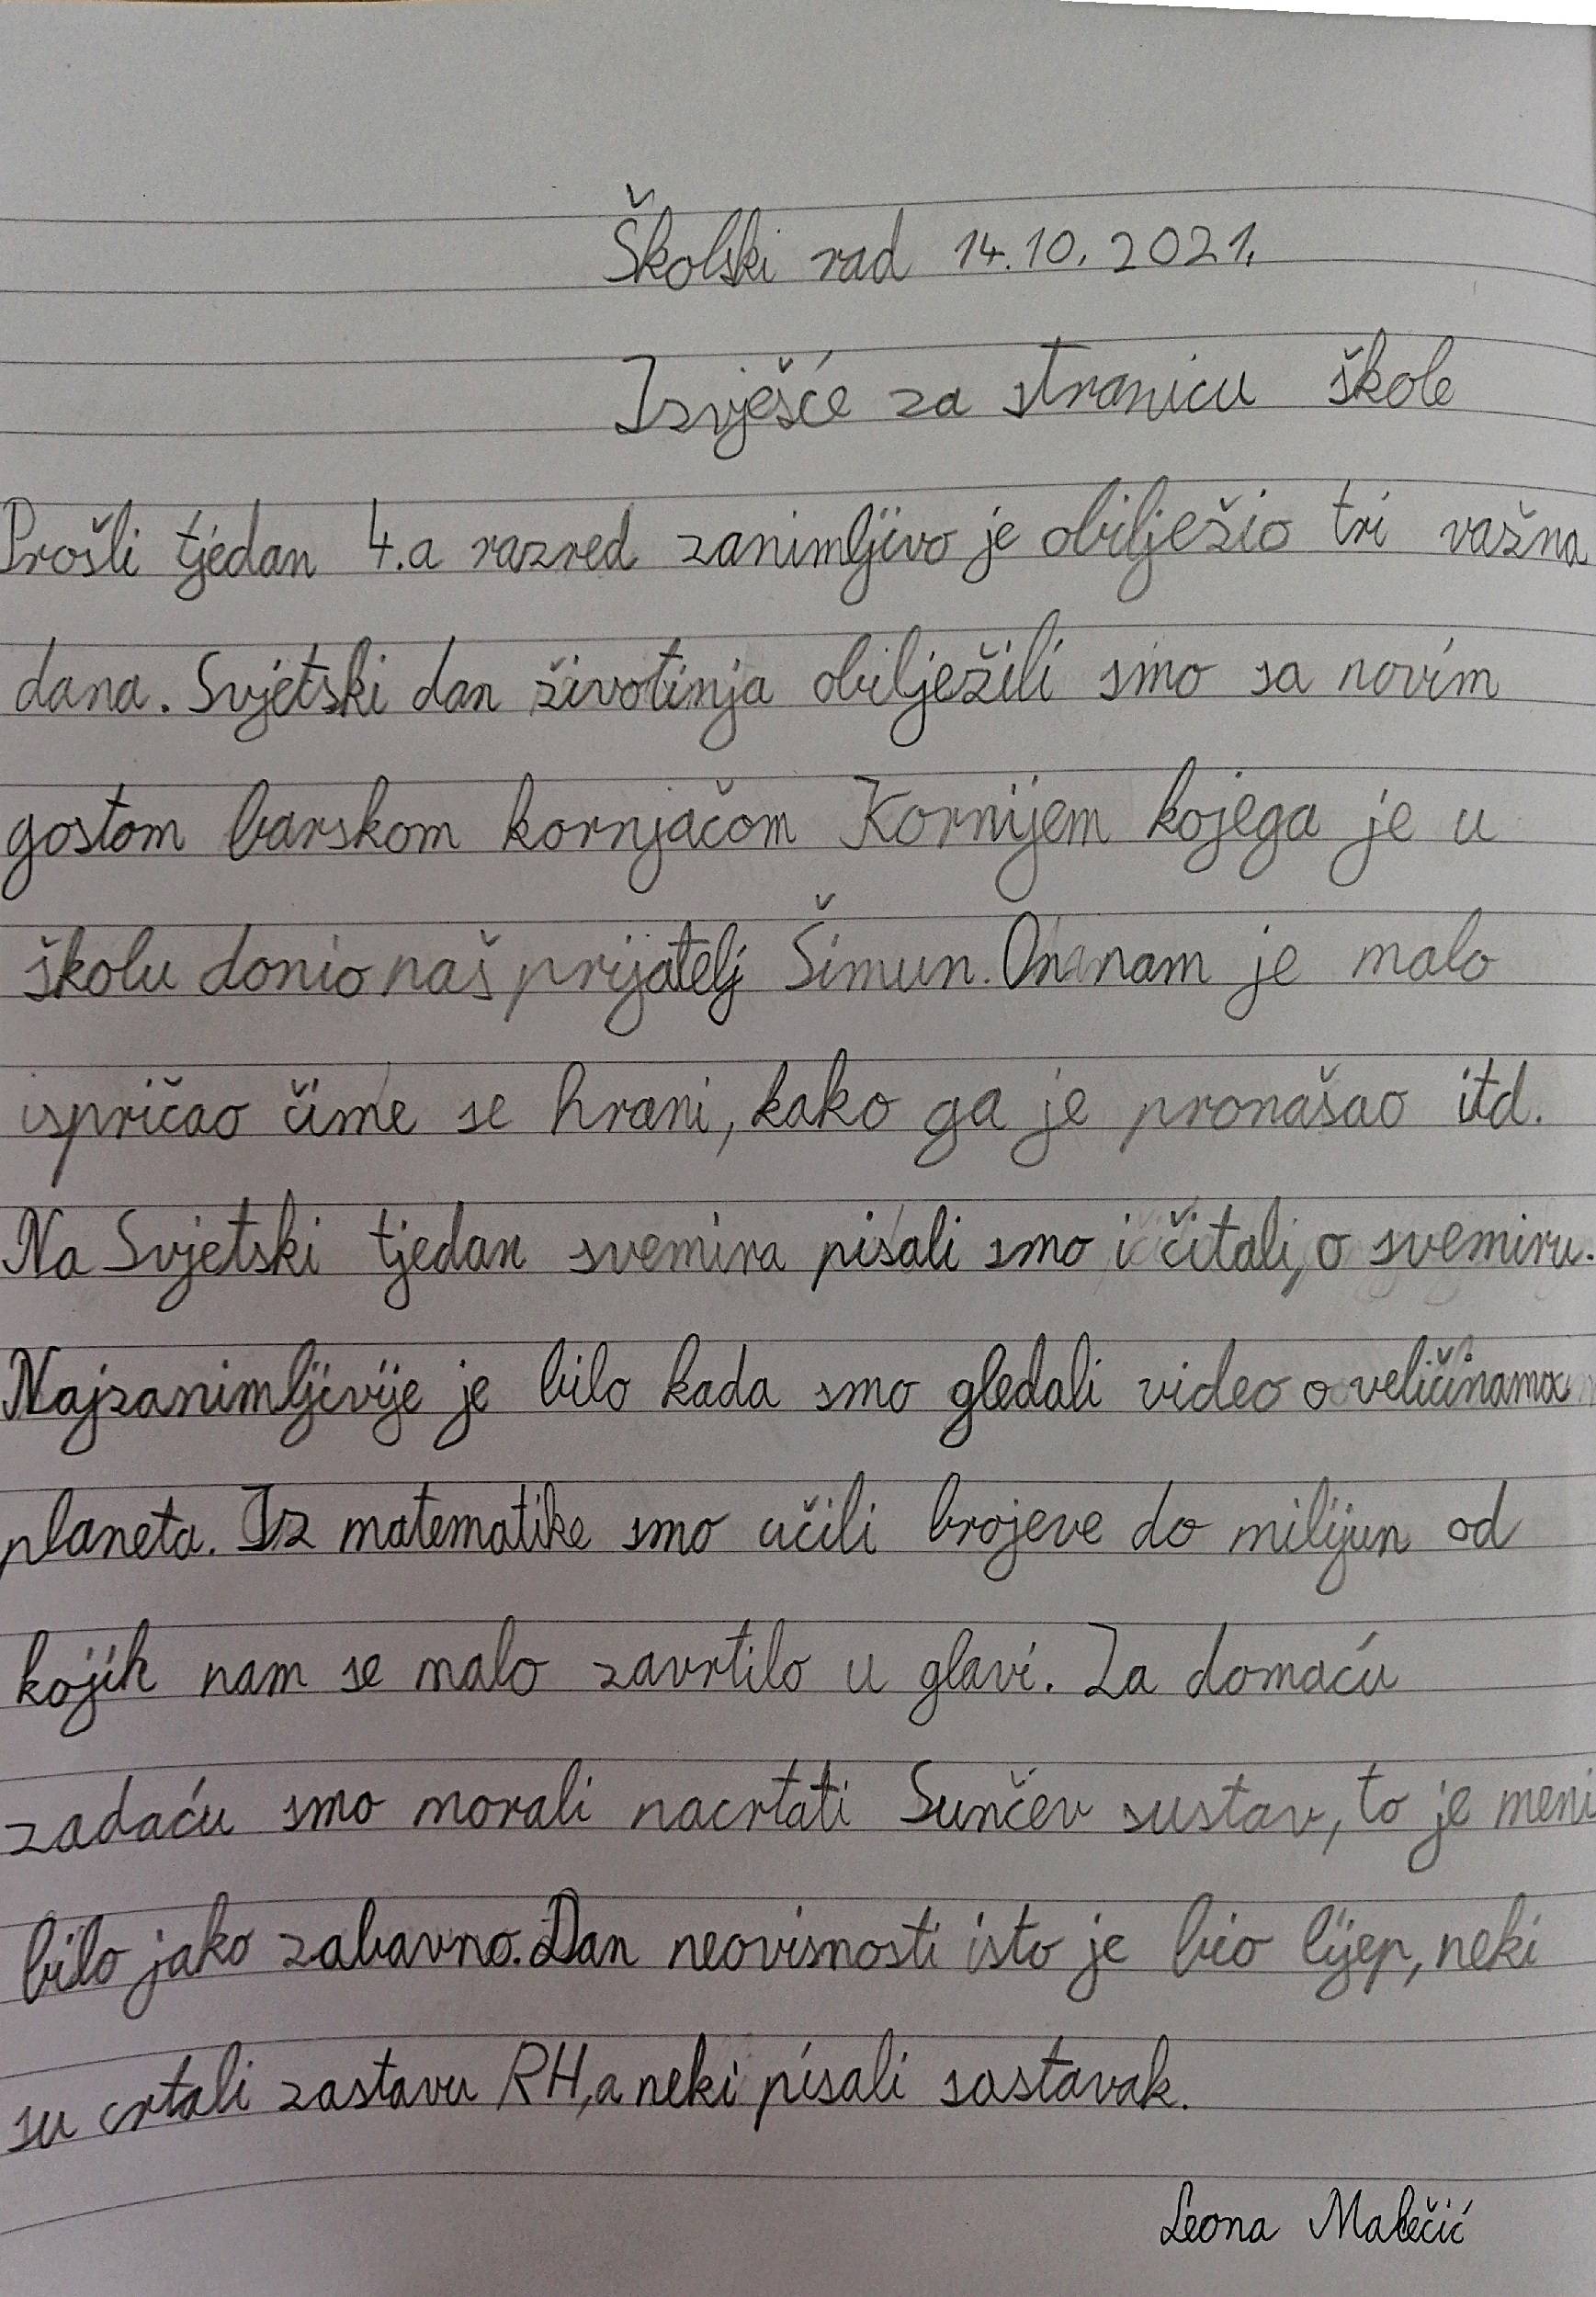 Školski rad 14.10.2021.
Izvješće za stranicu škole
Prošli tjedan 4.a razred zanimljivo je obilježio tri važna
dana. Svjetski dan životinja obilježili smo sa novim
gostom barskom kornjačom Kornijem kojega je u
školu donio naš prijatelj Šimun. On nam je malo
ispričao čime se hrani, kako ga je pronašao itd.
Na Svjetski tjedan svemira pisali smo i čitali, o svemiru.
Najzanimljivije je bilo kada smo gledali video o veličinama
planeta. Iz matematike smo učili brojeve do milijun od
kojih nam se malo zavrtilo u glavi. Za domaću
zadaću smo morali nacrtati Sunčev sustav, to je meni
bilo jako zabavno. Dan neovisnosti isto je bio lijep, neki
su crtali zastavu RH, a neki pisali sastavak.
Leona